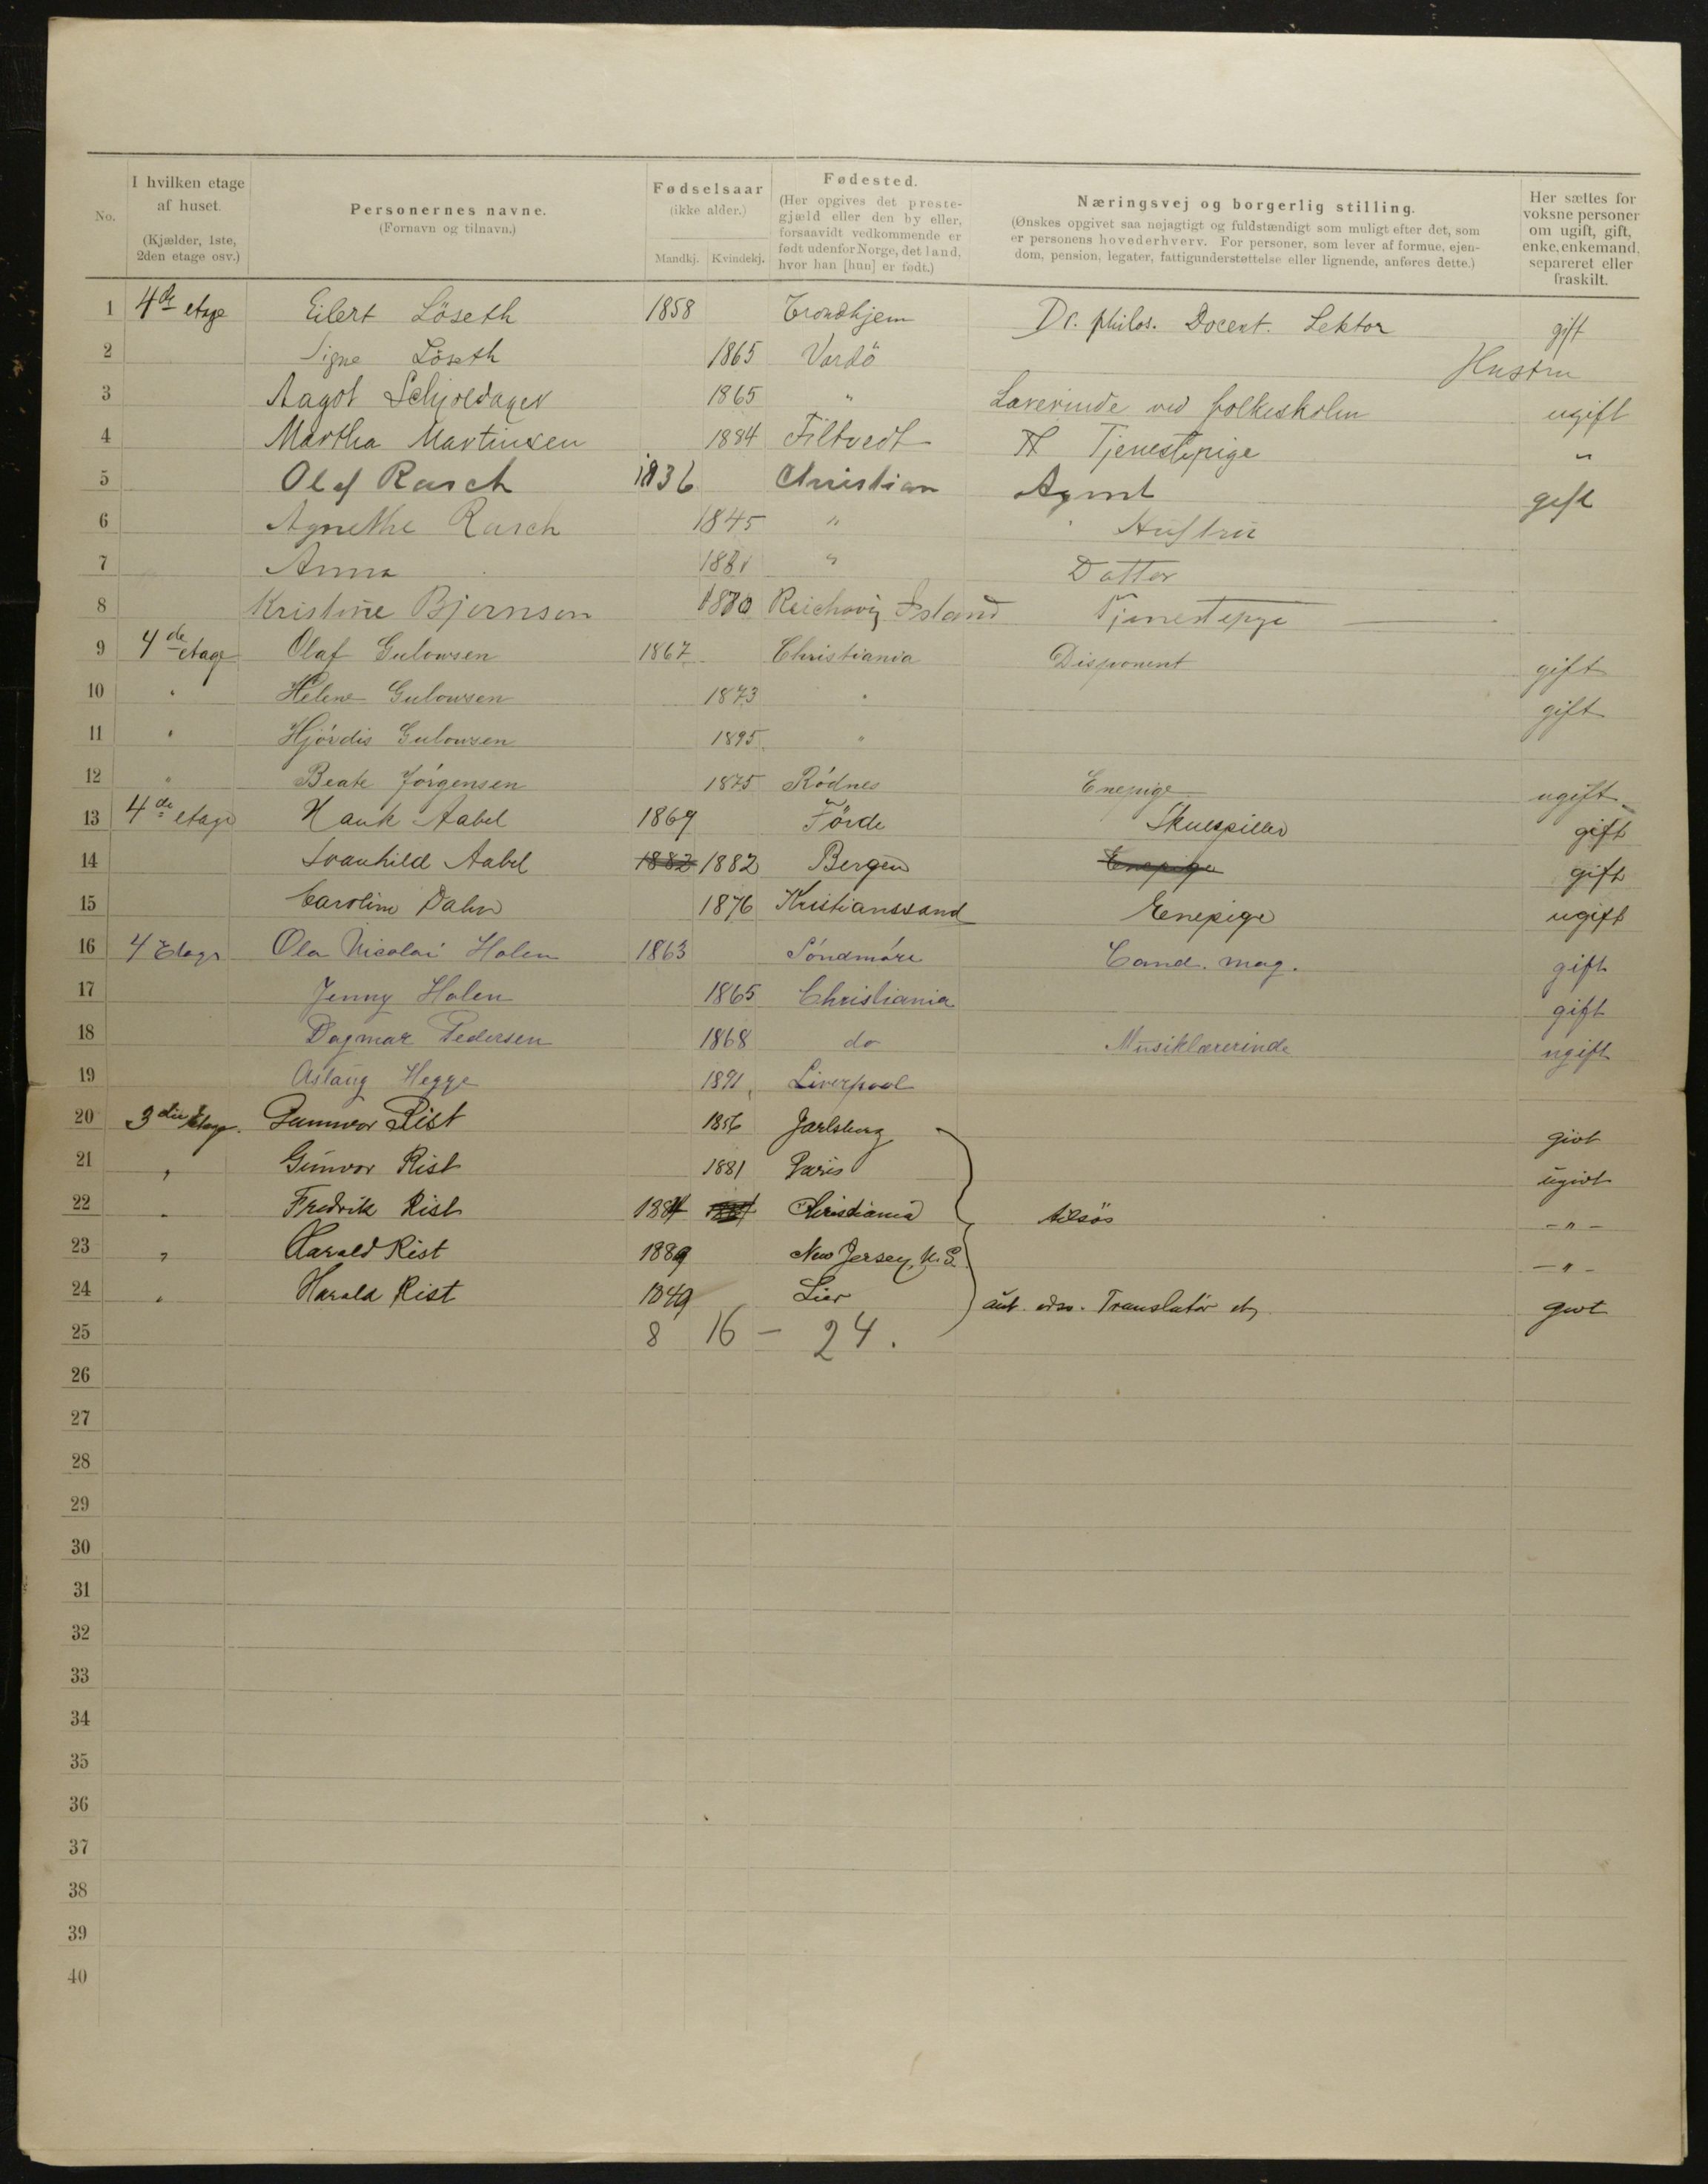 No. I hvilken etage af huset. (Kjælder, 1ste, 2den etage osv.) Personernes navne. (Fornavn og tilnavn.) Fødselsaar (ikke alder.) Mandkj. Kvindekj. Fødested. (Her opgives det prestegjæld eller den by eller, forsaavidt vedkommende er født udenfor Norge, det land, hvor han [hun] er født.) Næringsvej og borgerlig stilling. (Ønskes opgivet saa nøjagtigt og fuldstændigt som muligt efter det, som er personens hovederhverv. For personer, som lever af formue, ejendom, pension, legater, fattigunderstøttelse eller lignende, anføres dette.) Her sættes for voksne personer om ugift, gift, enke, enkemand, separeret eller fraskilt.
1 4de etage Eilert Löseth 1858 Trondhjem Dr. philos. Docent. Lektor gift
2 Signe Löseth 1865 Vardö Hustru
3 Aagot Schjoldager 1865 " Lærerinde ved folkeskolen ugift
4 Martha Martinsen 1884 Filtvedt Tjenestepige "
5 Olaf Rasch 1836 Christian Agent gift
6 Agnethe Rasch 1845 " Hustru
7 Anna 1881 " Datter
8 Kristine Bjørnson 1880 Reichavig Island Tjenestepige
9 4de etage Olaf Gulowsen 1867 Christiania Disponent gift
10 " Helene Gulowsen 1873 " gift
11 " Hjördis Gulowsen 1895 "
12 " Beate Jörgensen 1875 Rödnes Enepige ugift
13 4de etage Hauk Aabel 1869 Förde Skuespiller gift
14 Svanhild Aabel 1882 1882 Bergen Enepige gift
15 Caroline Dahn 1876 Kristianssand Enepige ugift
16 4 Etage Ola Nicolai Holen 1863 Söndmöre Cand. mag. gift
17 Jenny Holen 1865 Christiania gift
18 Dagmar Pedersen 1868 do Musiklærerinde ugift
19 Aslaug Hegge 1891 Liverpool
20 3die Etage. Gunnvor Rist 1856 Jarlsberg givt
21 " Gunvor Rist 1881 Paris ugivt
22 " Fredrik Rist 1884 Christiania - " -
23 " Harald Rist 1889 New Jersey, U.S. - " -
24 " Harald Rist 1849 Lier aut. Translatör givt
25 8 16 - 24.
26
27
28
29
30
31
32
33
34
35
36
37
38
39
40